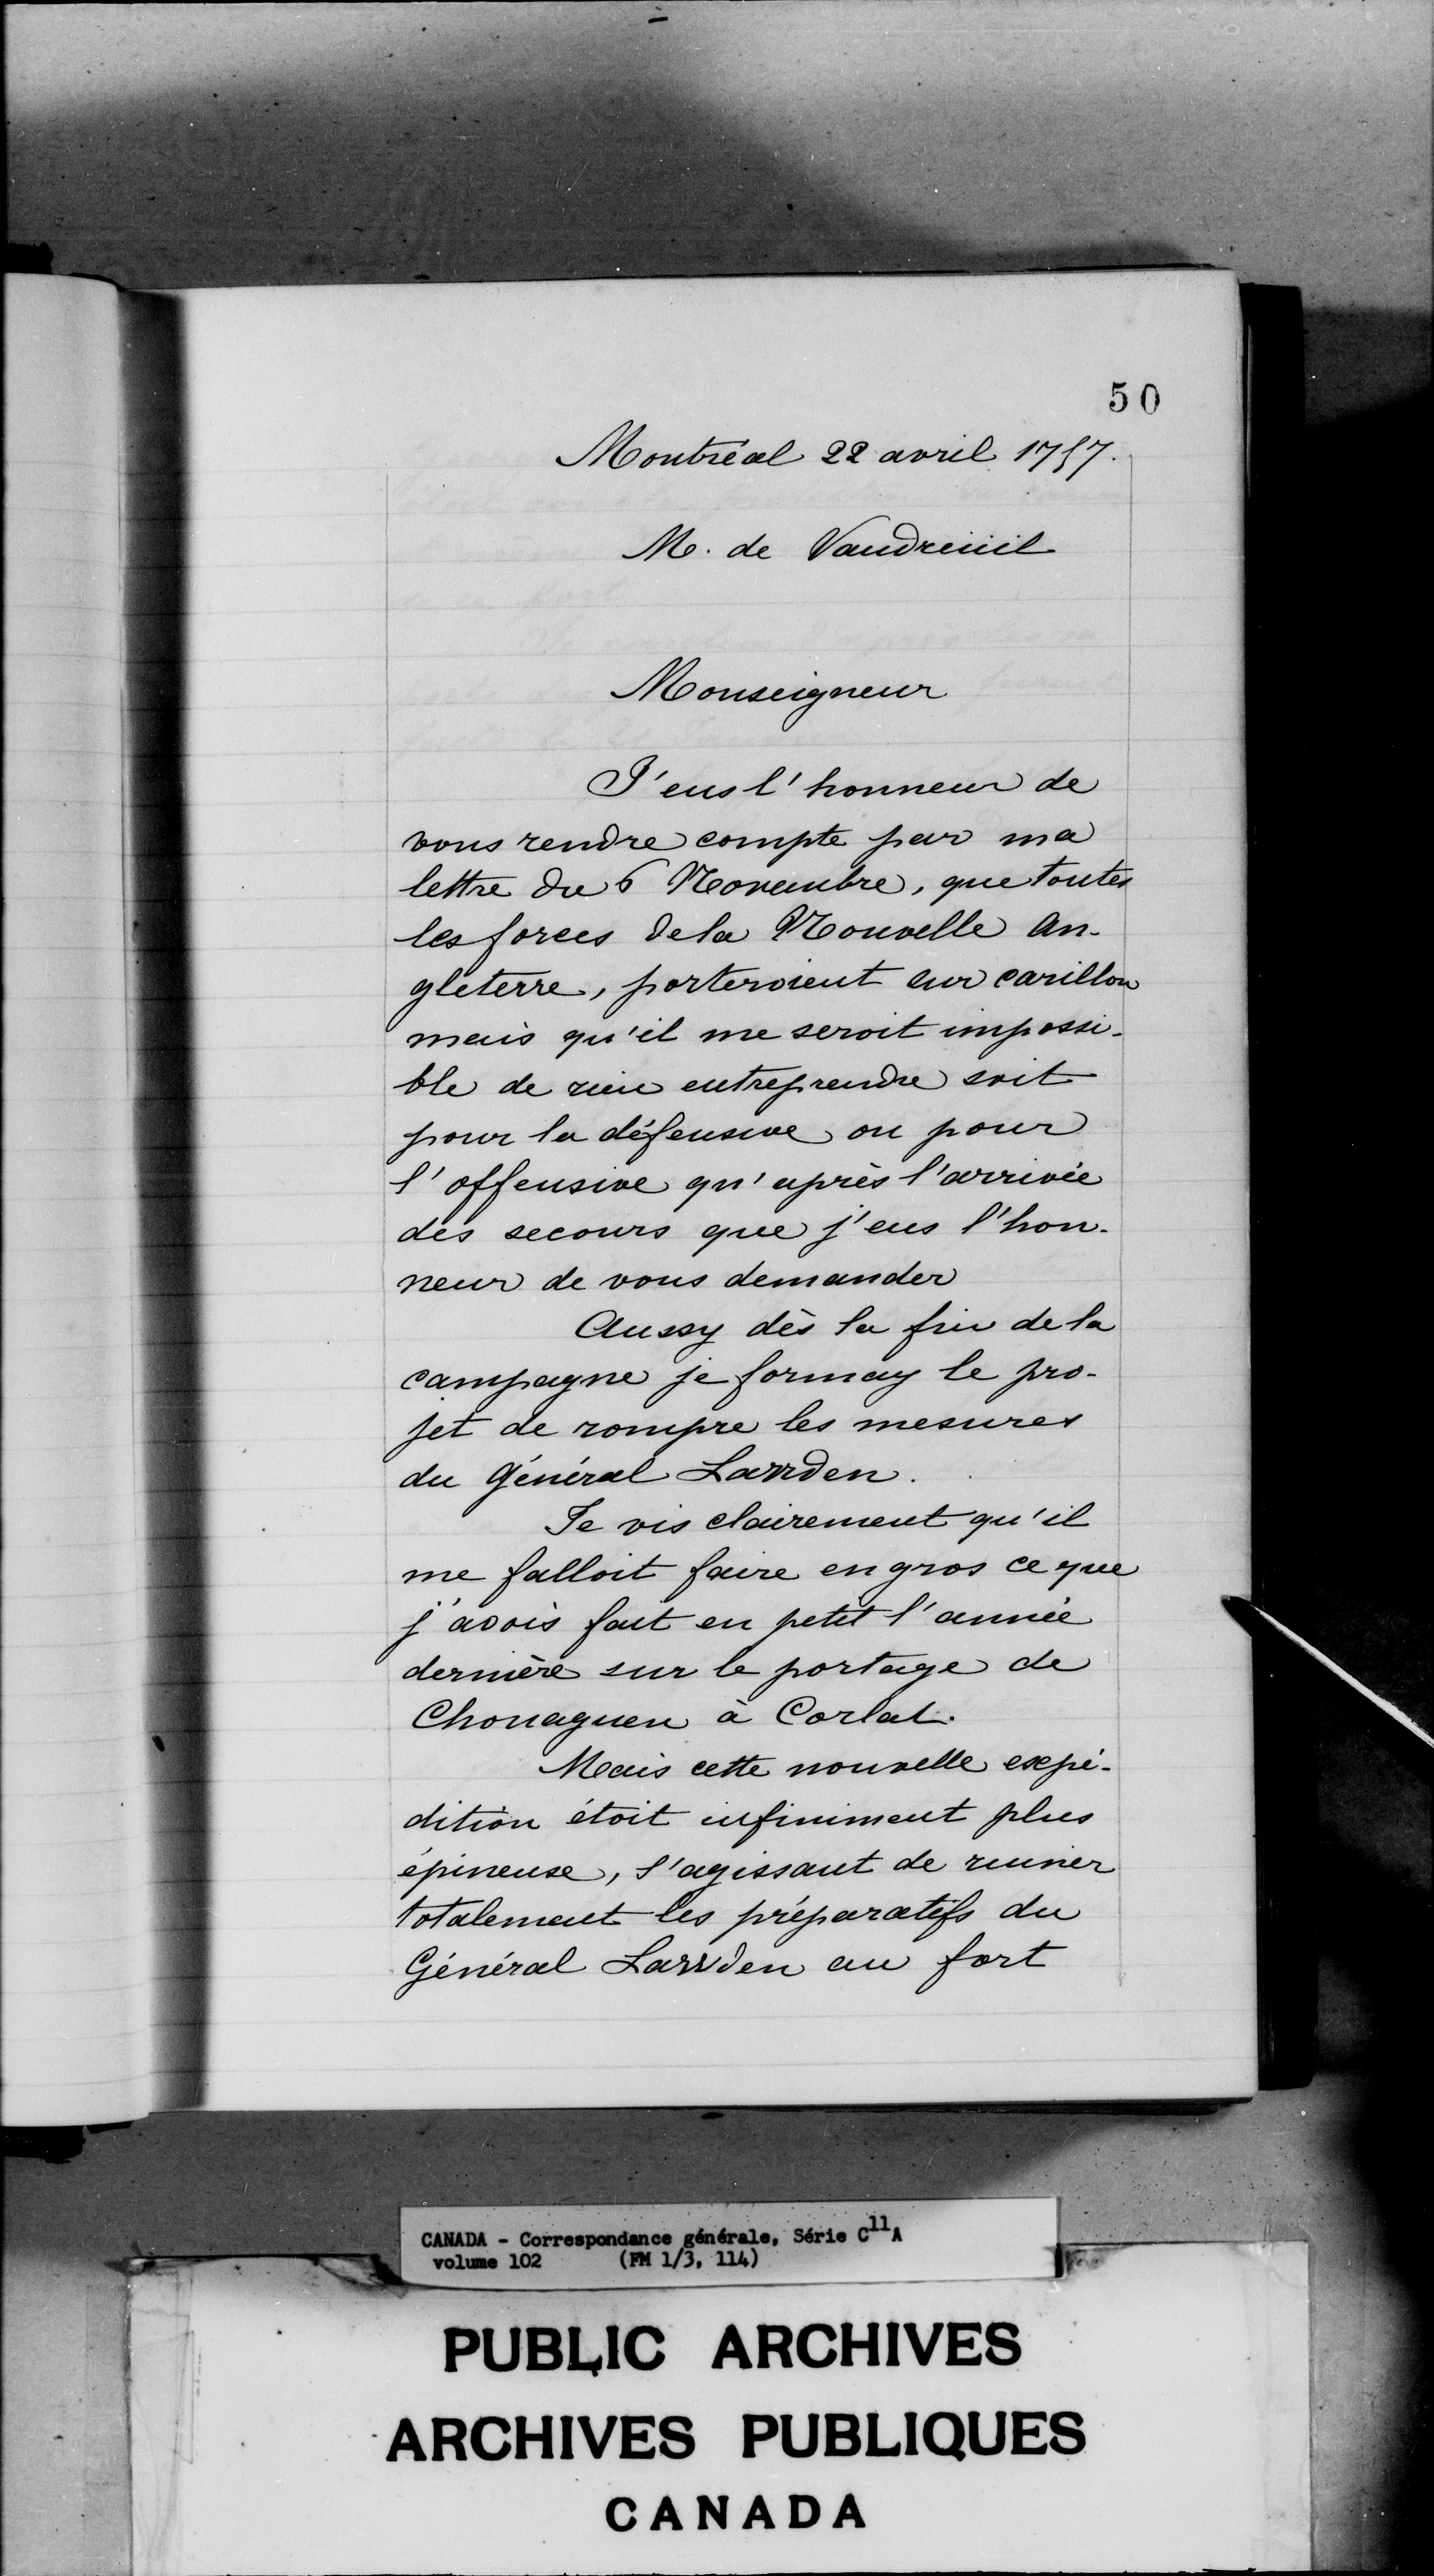 50
Montréal 22 avril 1757.
M. de Vaudreuil
Monseigneur
J'eus l'honneur de
vous rendre compte par ma
lettre du 6 Novembre, que toutes
les forces de la Nouvelle An-
gleterre, porteroient sur carillon
mais qu'il me seroit impossi-
ble de rien entreprendre soit
pour la défensive ou pour
l'offensive qu'après l'arrivée
des secours que j'eus l'hon-
neur de vous demander
Aussy dès la fin de la
campagne je formay le pro-
jet de rompre les mesures
du Général
Je vis clairement qu'il
me falloit faire en gros ce que
j'avois fait en petit l'année
dernière sur le portage de
Chouaguen à Corlat.
Mais cette nouvelle expé-
dition étoit infiniment plus
épineuse, s'agissant de ruiner
totalement les préparatifs du
Général au fort
CANADA - Correspondance générale, Série C11A
volume 102 (FM 1/3, 114)
PUBLIC ARCHIVES
ARCHIVES PUBLIQUES
CANADA